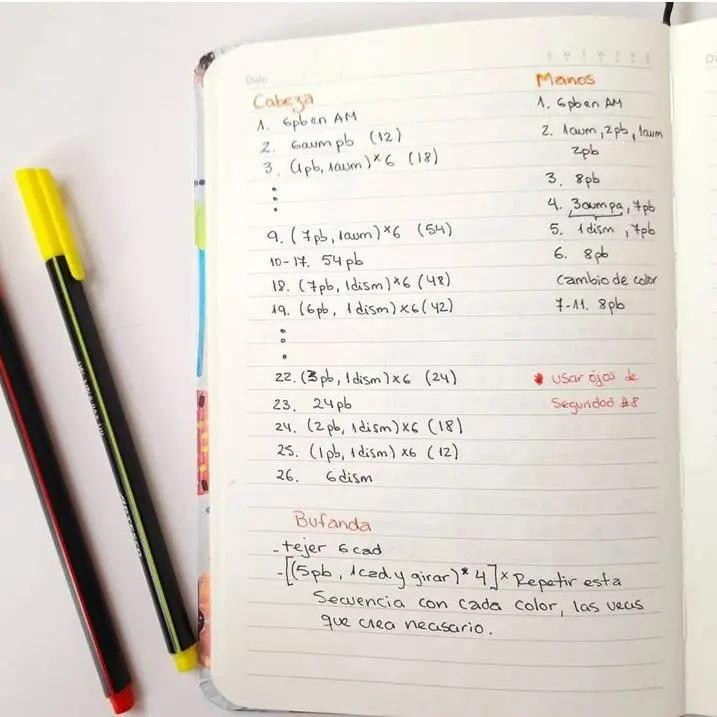 Date
S M T W T F S
Cabeza
1. 6pb en AM
2. 6aum pb (12)
3. (1pb, 1aum)×6 (18)
9. (7pb, 1aum)×6 (54)
10-17. 54pb
18. (7pb, 1dism)×6 (48)
19. (6pb, 1dism)×6 (42)
22. (3pb, 1dism)×6 (24)
23. 24pb
24. (2pb, 1dism)×6 (18)
25. (1pb, 1dism)×6 (12)
26. 6dism
Manos
1. 6pb en AM
2. 1aum, 2pb, 1aum
2pb
3. 8pb
4. 3aumpa, 7pb
5. 1dism, 7pb
6. 8pb
Cambio de color
7-11. 8pb
usar ojos de
Seguridad #8
Bufanda
- tejer 6cad
- [(5pb, 1cad. y girar)* 4]× Repetir esta
Secuencia con cada color, las veces
que crea necesario.